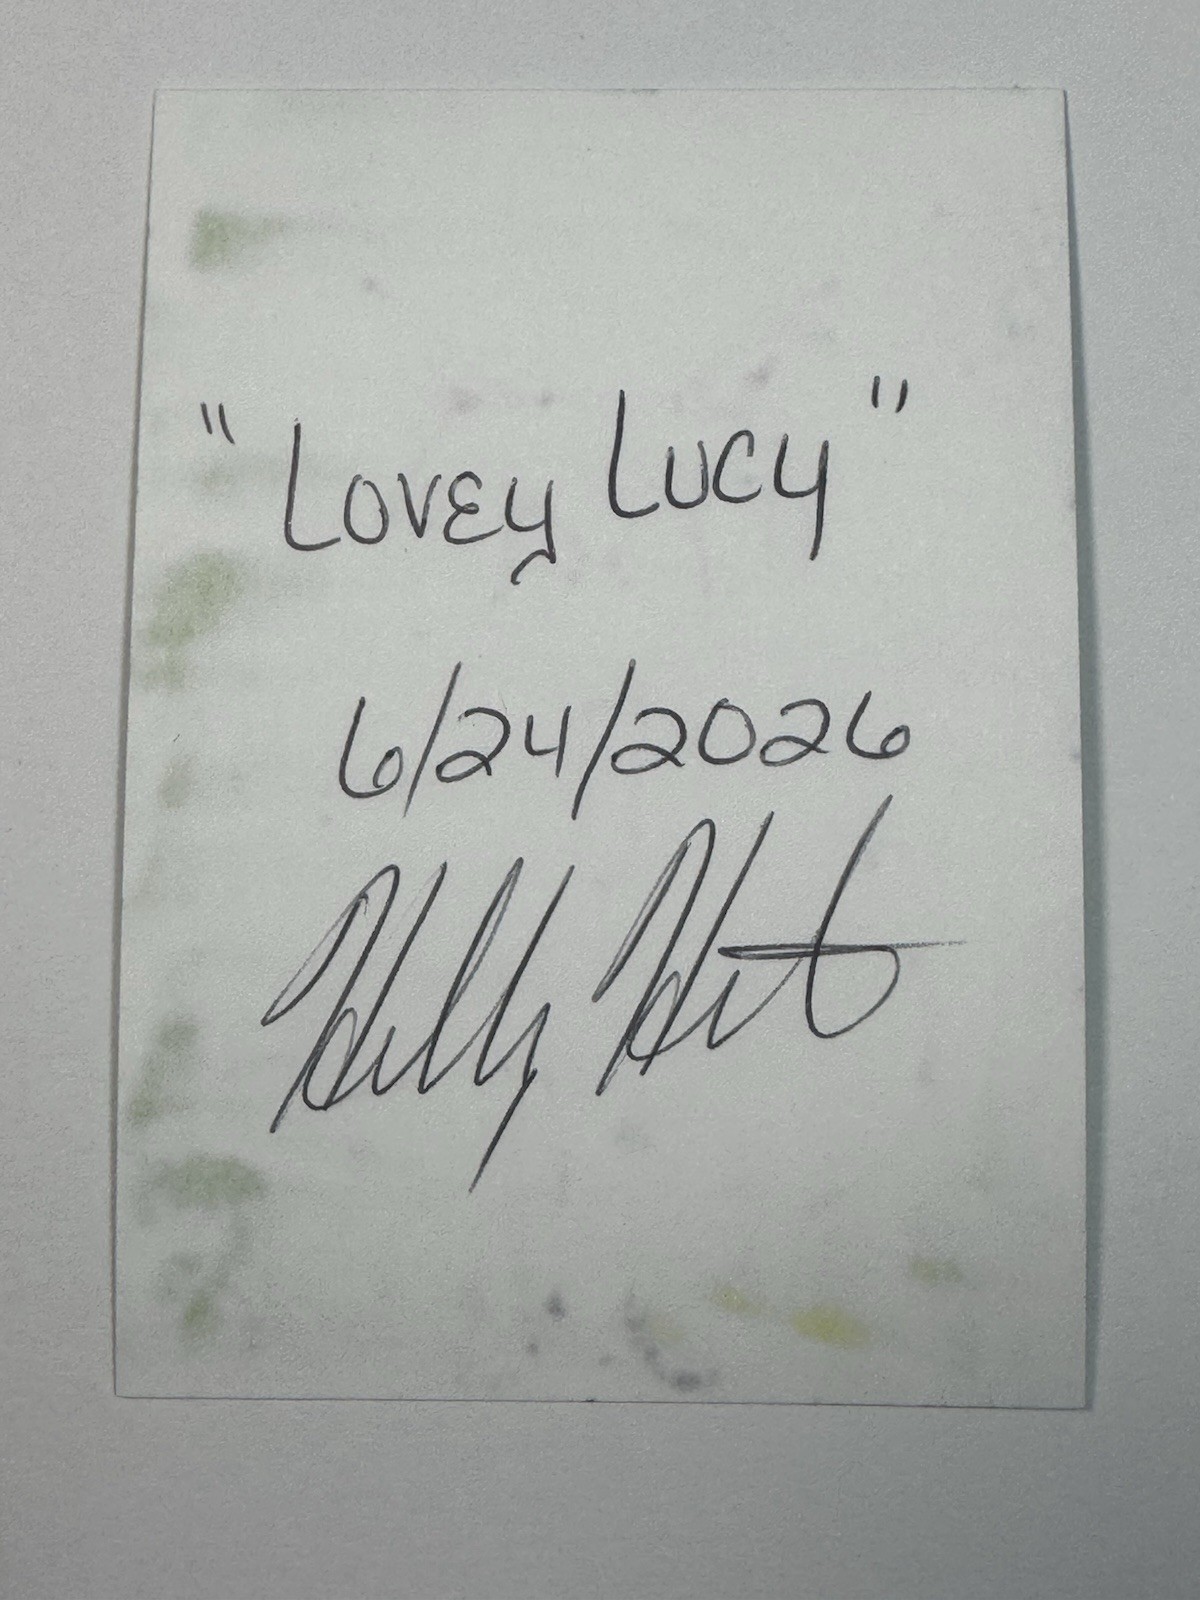 "Lovey Lucy"
6/24/2026